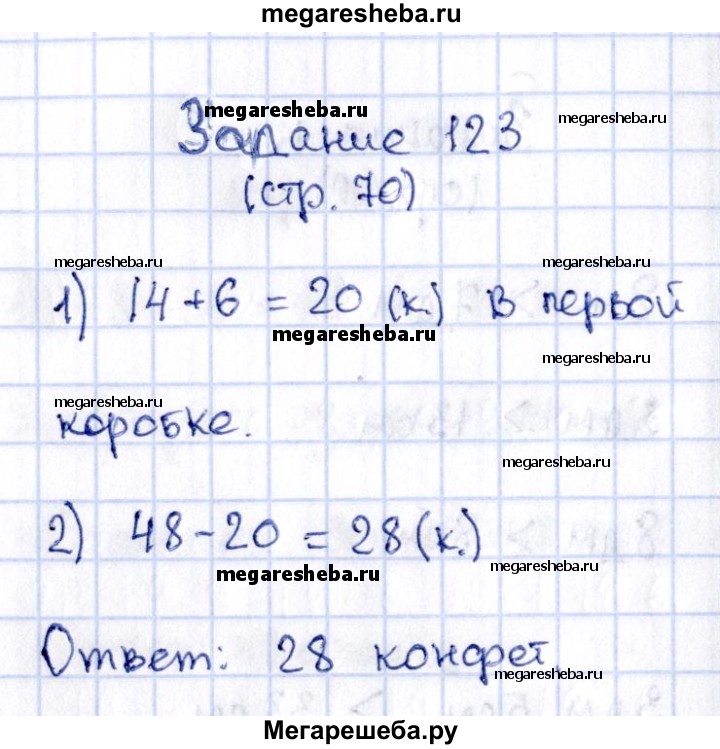 megaresheba.ru
megaresheba.ru
megaresheba.ru
Задание 123
(стр. 70)
megaresheba.ru
megaresheba.ru
1) 14 + 6 = 20 (к.) в первой
megaresheba.ru
megaresheba.ru
megaresheba.ru
коробке.
megaresheba.ru
2) 48 - 20 = 28 (к.)
megaresheba.ru
megaresheba.ru
Ответ: 28 конфет
megaresheba.ru
Мегарешеба.ру